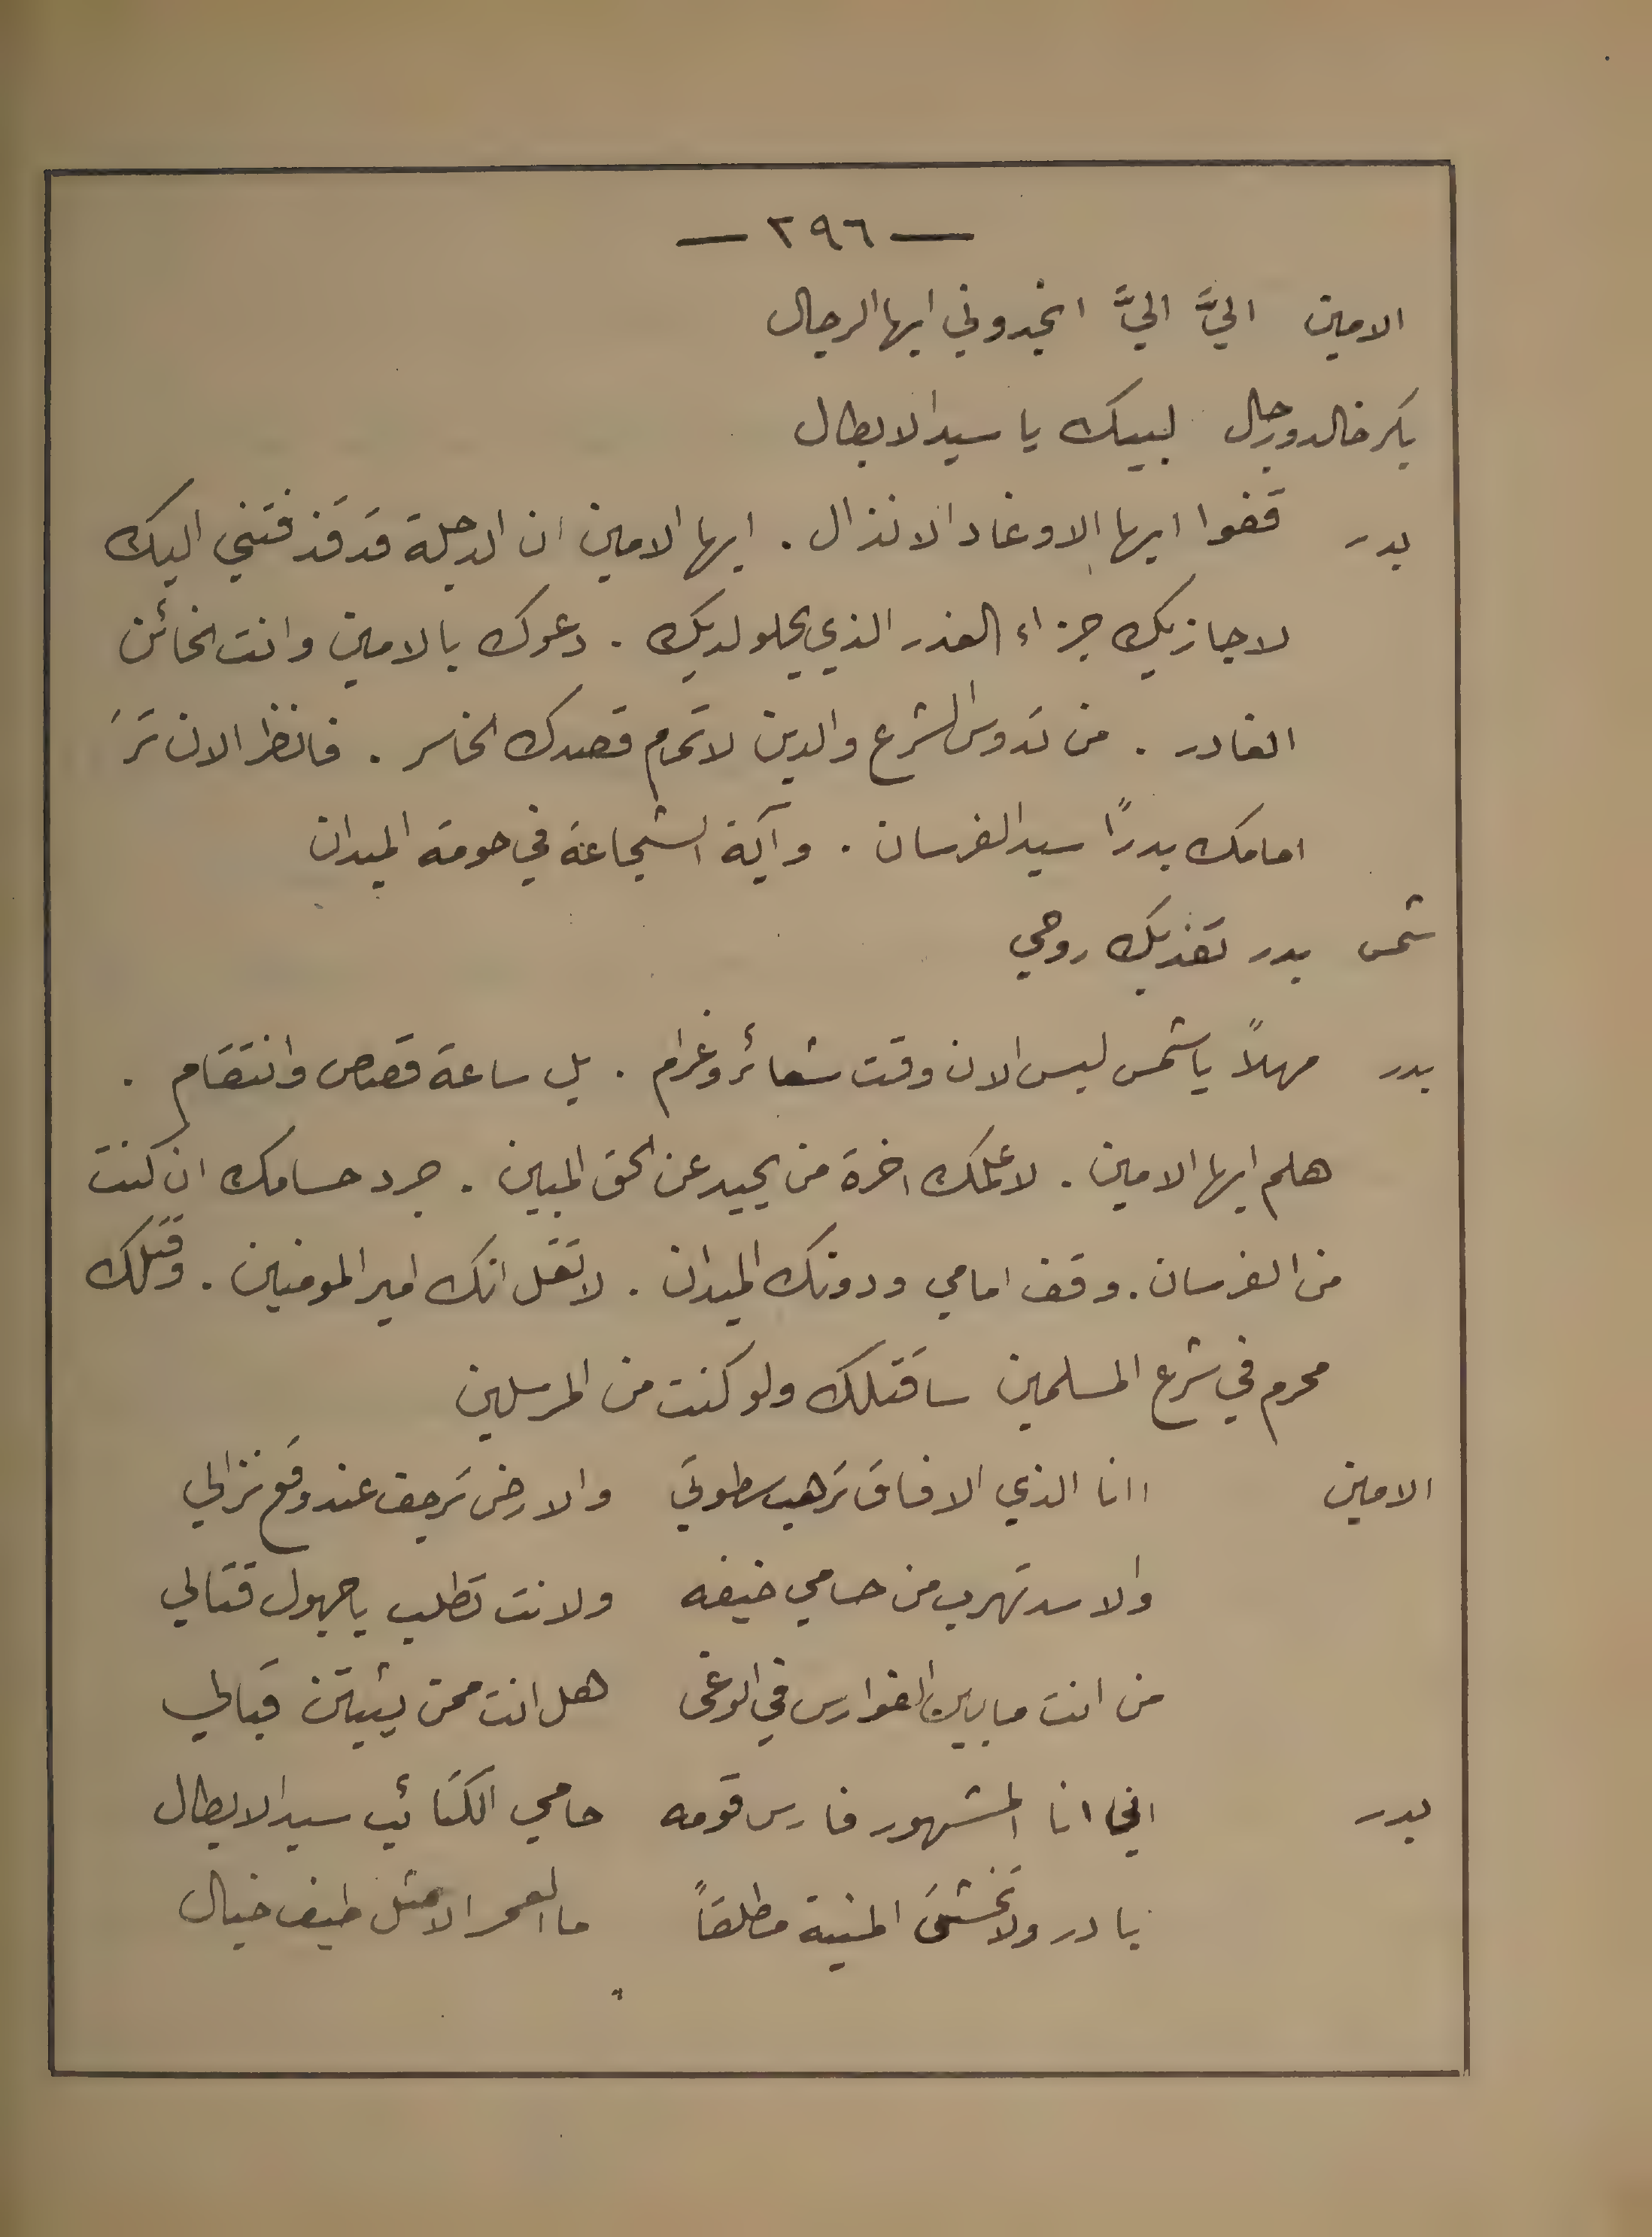 — ٢٩٦ —
الامين اليَّ اليَّ انجدوني ايها الرجال
بكر خالد ورجال لبيك يا سيد الابطال
بدر قفوا ايها الاوغاد الانذال . ايها الامين ان الدجلة قد قذفتني اليك
لاجازيك جزاء الغدر الذي يحلو لديك . دعوك بالامين وانت الخائن
الغادر . من تدوس الشرع والدين لاتمام قصدك الخاسر . فانظر الان ترَ
امامك بدرًا سيد الفرسان . وآية الشجاعة في حومة الميدان
شمس بدر تفديك روحي
بدر مهلاً يا شمس ليس الان وقت شعائر وغرام . بل ساعة قصاص وانتقام .
هلم ايها الامين . لاعلمك اخرة من يحيد عن الحق المبين . جرد حسامك ان كنت
من الفرسان . وقف امامي ودونك الميدان . لا تقل انك امير المومنين . وقتلك
محرم في شرع المسلمين ساقتلك ولو كنت من المرسلين
الامين اانا الذي الافاق ترهب سطوتي والارض ترجف عند وقع نزالي
والاسد تهرب من حسامي خيفه ولانت تطلب يا جهول قتالي
من انت ما بين الفوارس في الوغى هل انت ممن يثبتن قبالي
بدر اني انا المشهور فارس قومه حامي الكتائب سيد الابطال
بادر ولا تخشىَ المنية مطلقاً ما العمر الا مثل طيف خيال